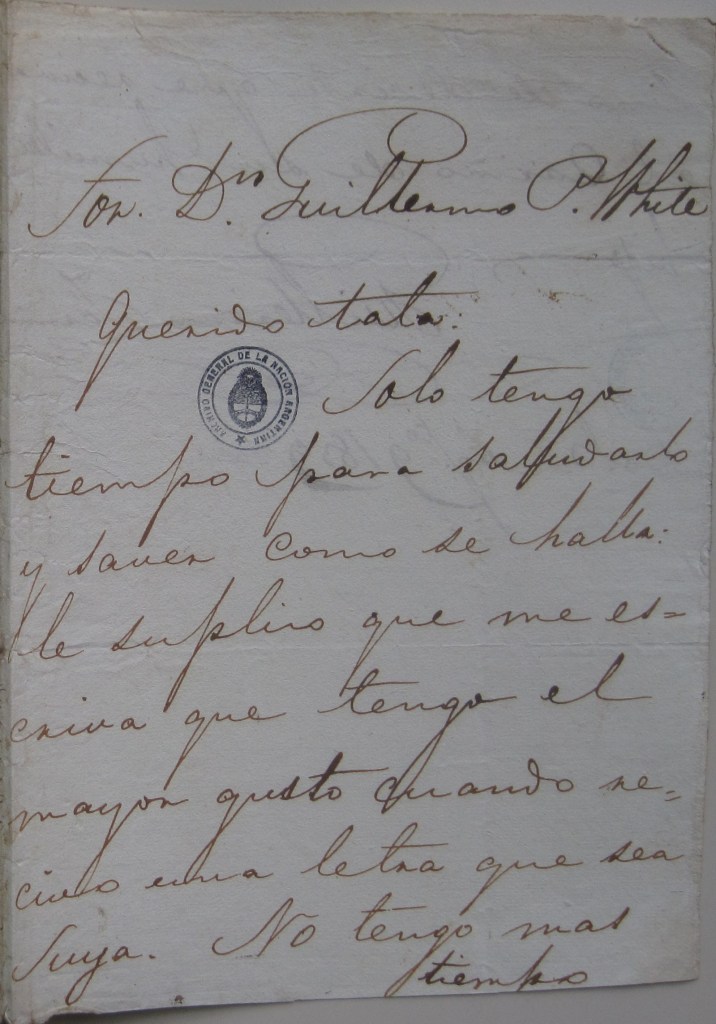 Sor. Dn. Guillermo P. White
Querido tata:
ARCHIVO GENERAL DE LA NACION ARGENTINA
Solo tengo
tiempo para saludarlo
y saver como se halla:
le suplico que me es=
criva que tengo el
mayor gusto cuando re=
civo una letra que sea
Suya. No tengo mas
tiempo